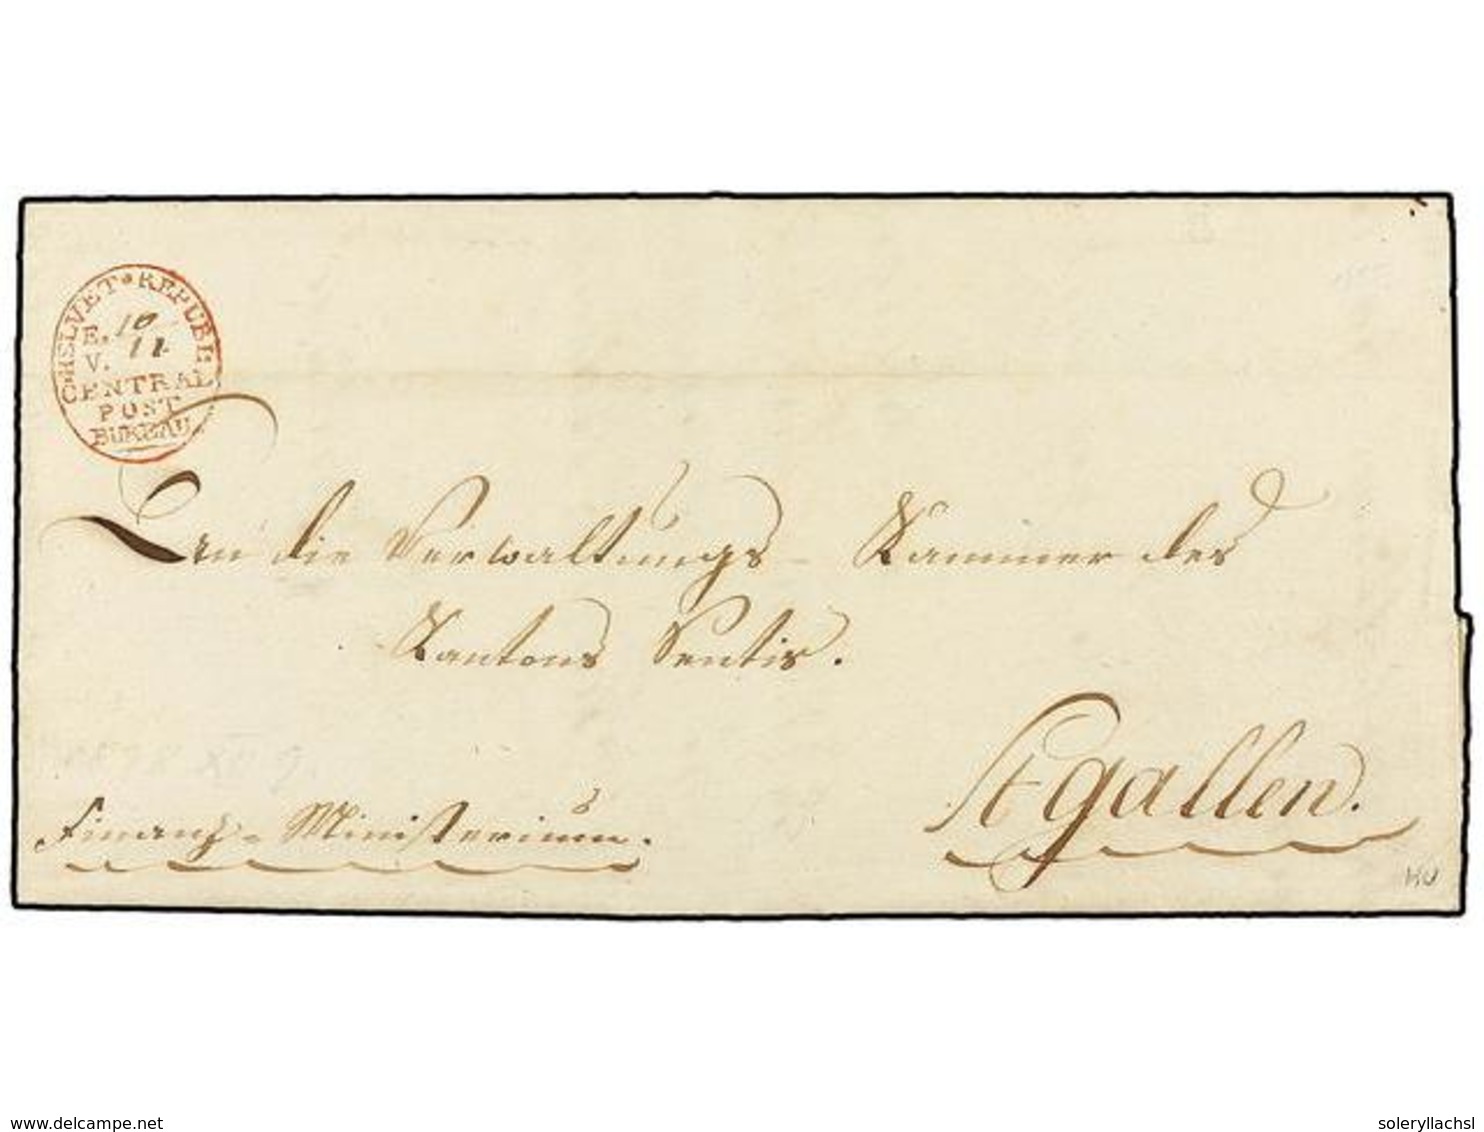 HELVET * REPUBL:
E. 10
V. 12
CENTRAL
POST
BUREAU.
An die Verwaltungs - Kammer des
Kantons Sentis.
St gallen.
Finanz - Ministerium.
KU
delcampe.net
soleryllachsl